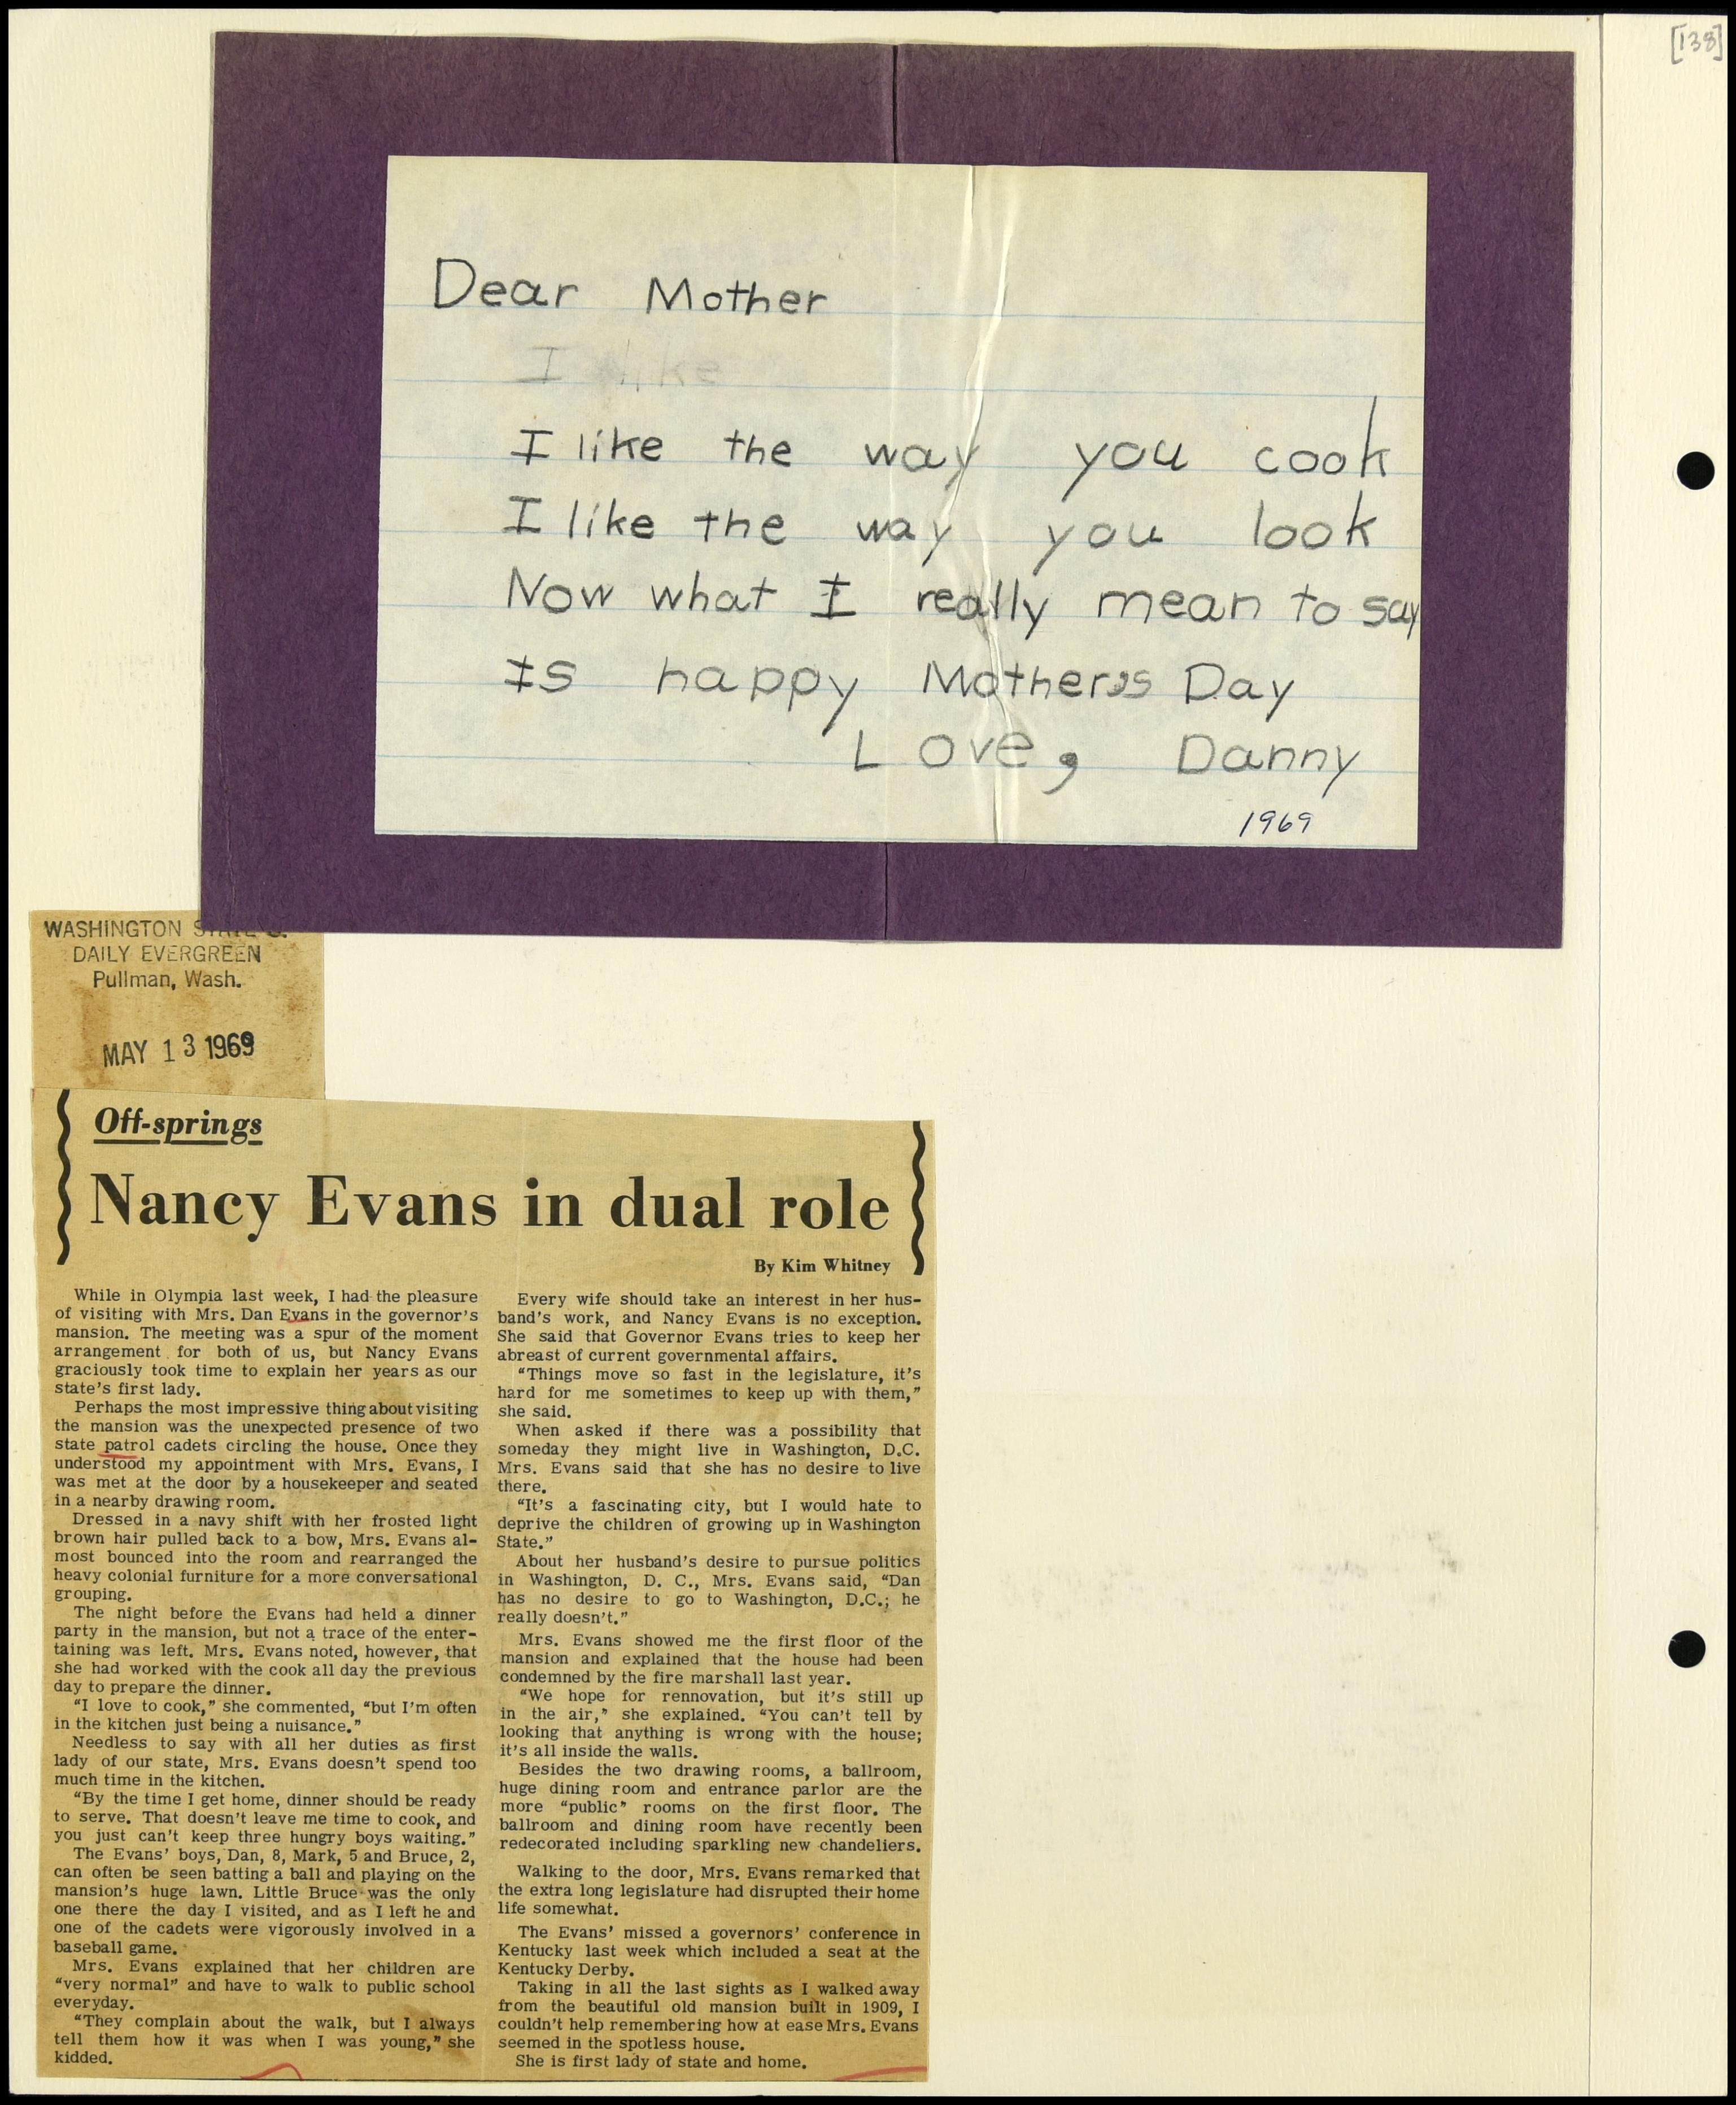 [138]
Dear Mother
I like
I like the way you cook
I like the way you look
Now what I really mean to say
Is happy Mother's Day
Love, Danny
1969
WASHINGTON
DAILY EVERGREEN
Pullman, Wash.
MAY 13 1969
Off-springs
Nancy Evans in dual role
By Kim Whitney
While in Olympia last week, I had the pleasure
of visiting with Mrs. Dan Evans in the governor's
mansion. The meeting was a spur of the moment
arrangement for both of us, but Nancy Evans
graciously took time to explain her years as our
state's first lady.
Perhaps the most impressive thing about visiting
the mansion was the unexpected presence of two
state patrol cadets circling the house. Once they
understood my appointment with Mrs. Evans, I
was met at the door by a housekeeper and seated
in a nearby drawing room.
Dressed in a navy shift with her frosted light
brown hair pulled back to a bow, Mrs. Evans al-
most bounced into the room and rearranged the
heavy colonial furniture for a more conversational
grouping.
The night before the Evans had held a dinner
party in the mansion, but not a trace of the enter-
taining was left. Mrs. Evans noted, however, that
she had worked with the cook all day the previous
day to prepare the dinner.
"I love to cook," she commented, "but I'm often
in the kitchen just being a nuisance."
Needless to say with all her duties as first
lady of our state, Mrs. Evans doesn't spend too
much time in the kitchen.
"By the time I get home, dinner should be ready
to serve. That doesn't leave me time to cook, and
you just can't keep three hungry boys waiting."
The Evans' boys, Dan, 8, Mark, 5 and Bruce, 2,
can often be seen batting a ball and playing on the
mansion's huge lawn. Little Bruce was the only
one there the day I visited, and as I left he and
one of the cadets were vigorously involved in a
baseball game.
Mrs. Evans explained that her children are
"very normal" and have to walk to public school
everyday.
"They complain about the walk, but I always
tell them how it was when I was young," she
kidded.
Every wife should take an interest in her hus-
band's work, and Nancy Evans is no exception.
She said that Governor Evans tries to keep her
abreast of current governmental affairs.
"Things move so fast in the legislature, it's
hard for me sometimes to keep up with them,"
she said.
When asked if there was a possibility that
someday they might live in Washington, D.C.
Mrs. Evans said that she has no desire to live
there.
"It's a fascinating city, but I would hate to
deprive the children of growing up in Washington
State."
About her husband's desire to pursue politics
in Washington, D. C., Mrs. Evans said, "Dan
has no desire to go to Washington, D.C.; he
really doesn't."
Mrs. Evans showed me the first floor of the
mansion and explained that the house had been
condemned by the fire marshall last year.
"We hope for rennovation, but it's still up
in the air," she explained. "You can't tell by
looking that anything is wrong with the house;
it's all inside the walls.
Besides the two drawing rooms, a ballroom,
huge dining room and entrance parlor are the
more "public" rooms on the first floor. The
ballroom and dining room have recently been
redecorated including sparkling new chandeliers.
Walking to the door, Mrs. Evans remarked that
the extra long legislature had disrupted their home
life somewhat.
The Evans' missed a governors' conference in
Kentucky last week which included a seat at the
Kentucky Derby.
Taking in all the last sights as I walked away
from the beautiful old mansion built in 1909, I
couldn't help remembering how at ease Mrs. Evans
seemed in the spotless house.
She is first lady of state and home.